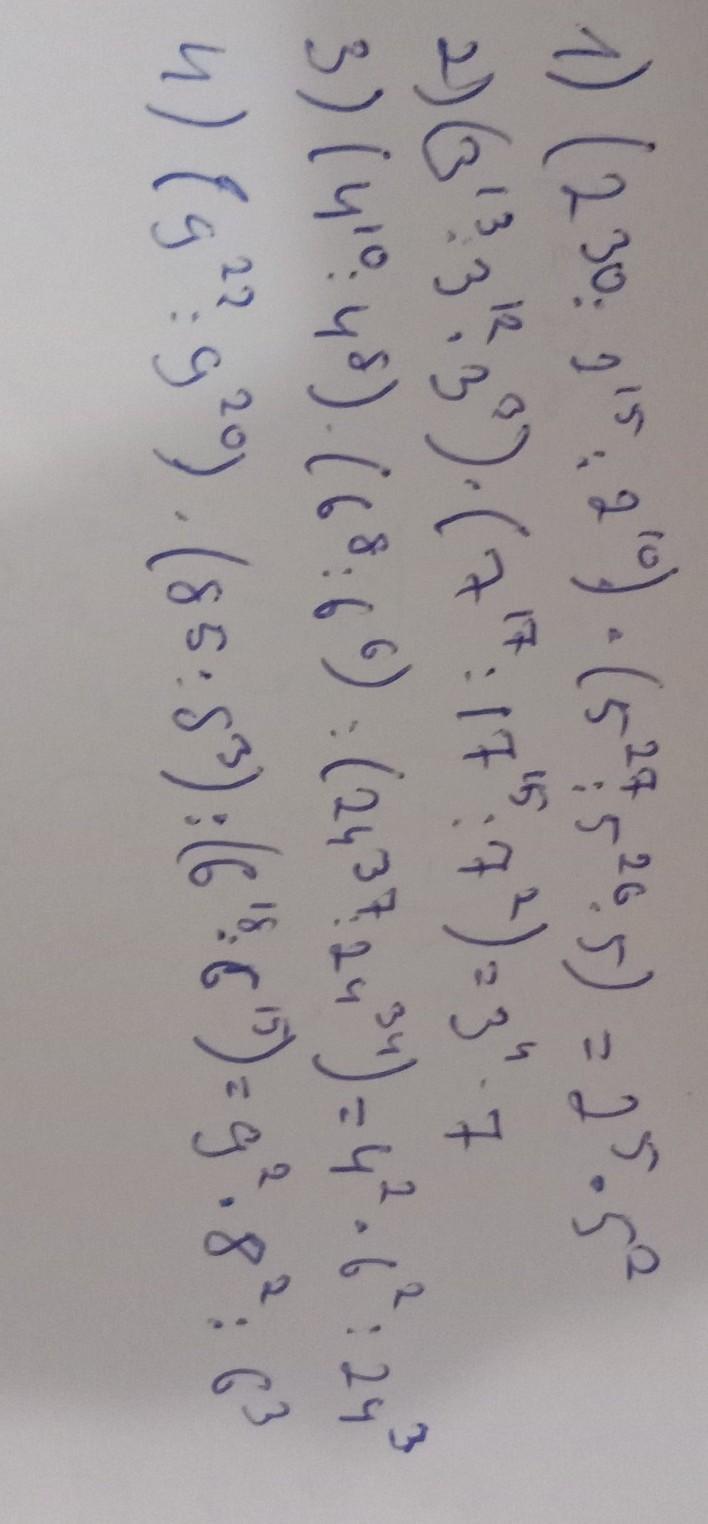 1) (2³⁰ : 2¹⁵ : 2¹⁰) · (5²⁷ : 5²⁶ · 5) = 2⁵ · 5²
2) (3¹³ : 3¹² · 3³) · (7¹⁷ : 17¹⁵ : 7²) = 3⁴ · 7
3) (4¹⁰ : 4⁸) · (6⁸ : 6⁶) : (24³⁷ : 24³⁴) = 4² · 6² : 24³
4) (9²² : 9²⁰) · (85 : 8³) : (6¹⁸ : 6¹⁵) = 9² · 8² : 6³